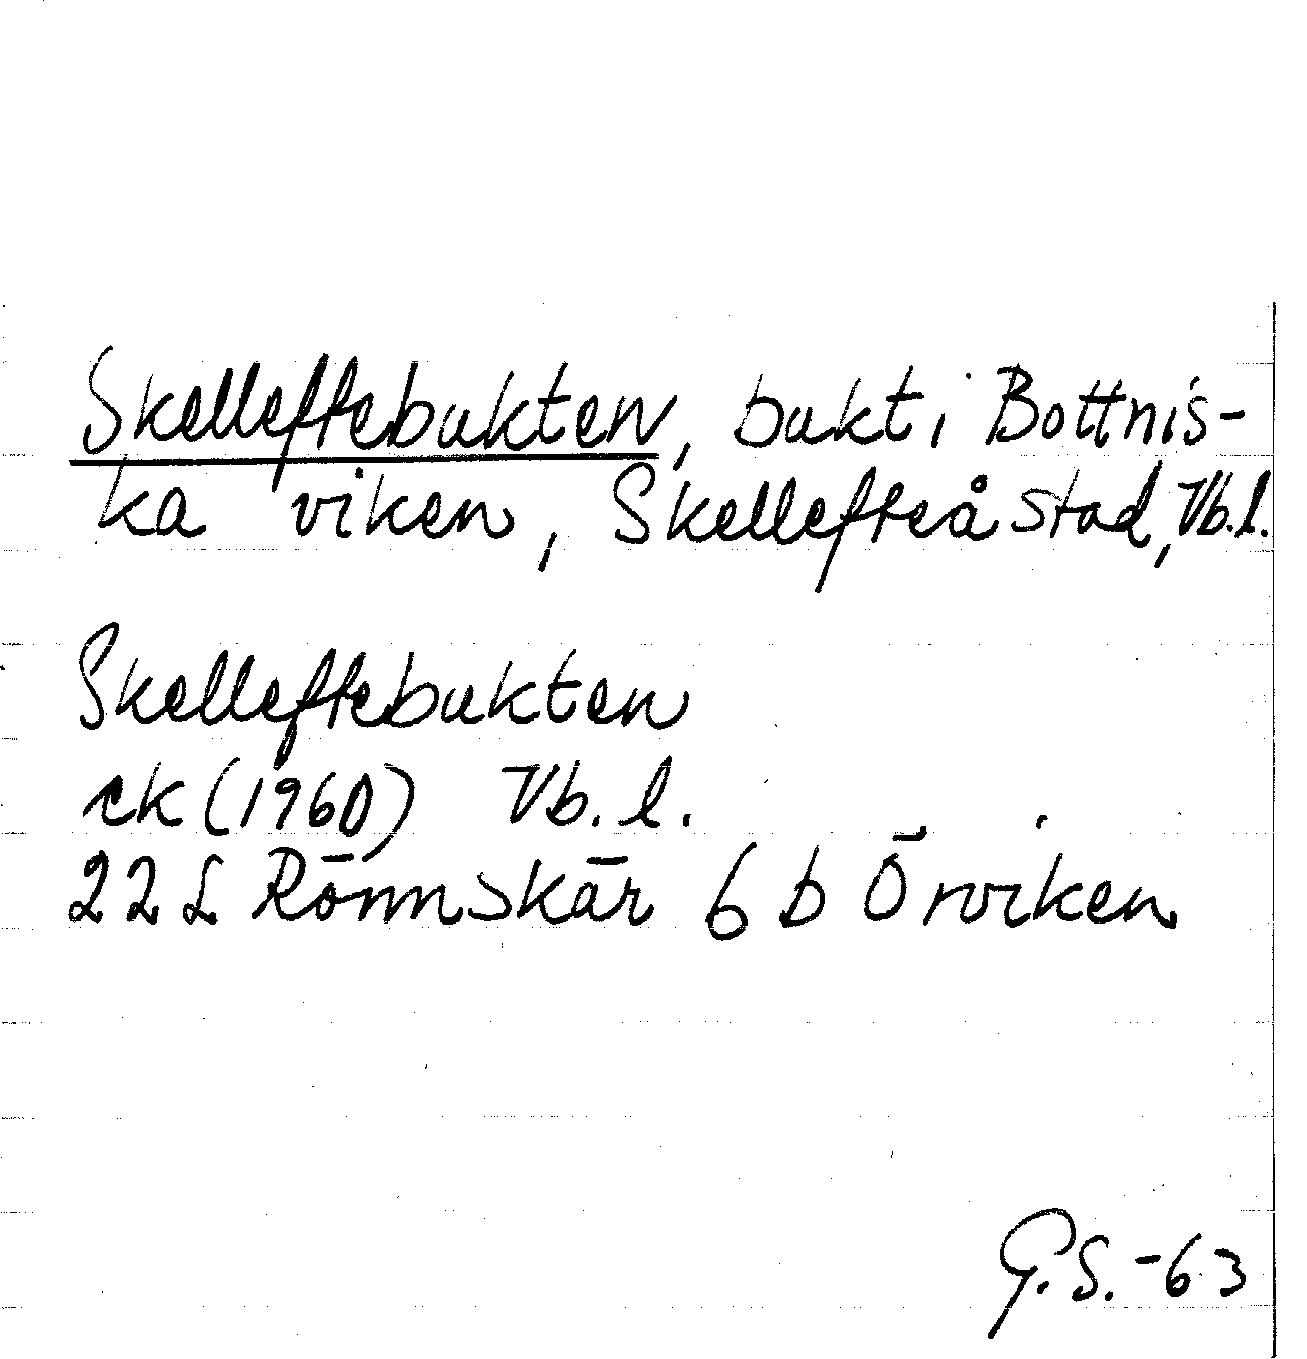 Skelleftebukten, bukt i Bottnis-
ka viken, Skellefteå stad, Vb.l.
Skelleftebukten
ek (1960) Vb. l.
22 L Rönnskär 6 b Örviken
G.S.-63